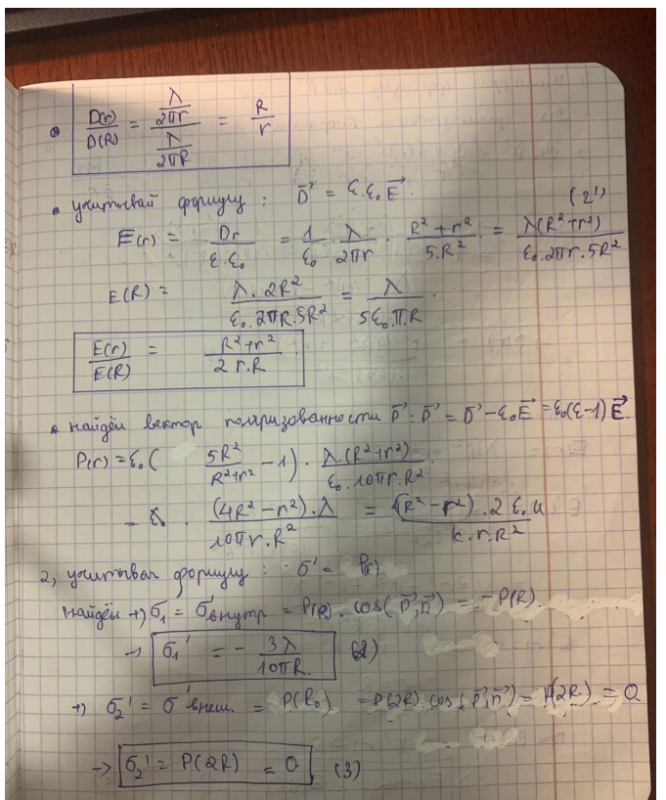 • D(r)/D(R) = (λ/2πr)/(λ/2πR) = R/r
• учитывай формулу: D⃗ = ε.ε₀E⃗. (2')
E(r) = Dr/ε.ε₀ = 1/ε₀ . λ/2πr . R²+r²/5.R² = λ(R²+r²)/ε₀.2πr.5R²
E(R) = λ.2R²/ε₀.2πR.5R² = λ/5ε₀.π.R.
E(r)/E(R) = R²+r²/2 r.R
• найдём вектор поляризованности P⃗: P⃗ = D⃗ - ε₀E⃗ = ε₀(ε-1)E⃗.
P(r) = ε₀( 5R²/R²+r² - 1) . λ.(R²+r²)/ε₀.10πr.R²
= . (4R²-r²).λ/10πr.R² = (R²-r²).2ε₀u/k.r.R²
2, учитывая формулу: σ' =
найдём → σ₁' = σ'внутр = P(R). cos(P⃗,n⃗) = -P(R).
→ σ₁' = - 3λ/10πR.
→ σ₂' = σ'внеш. = P(R₀) = P(2R) cos(P⃗,n⃗) = P(2R) = 0
→ σ₂' = P(2R) = 0 (3)